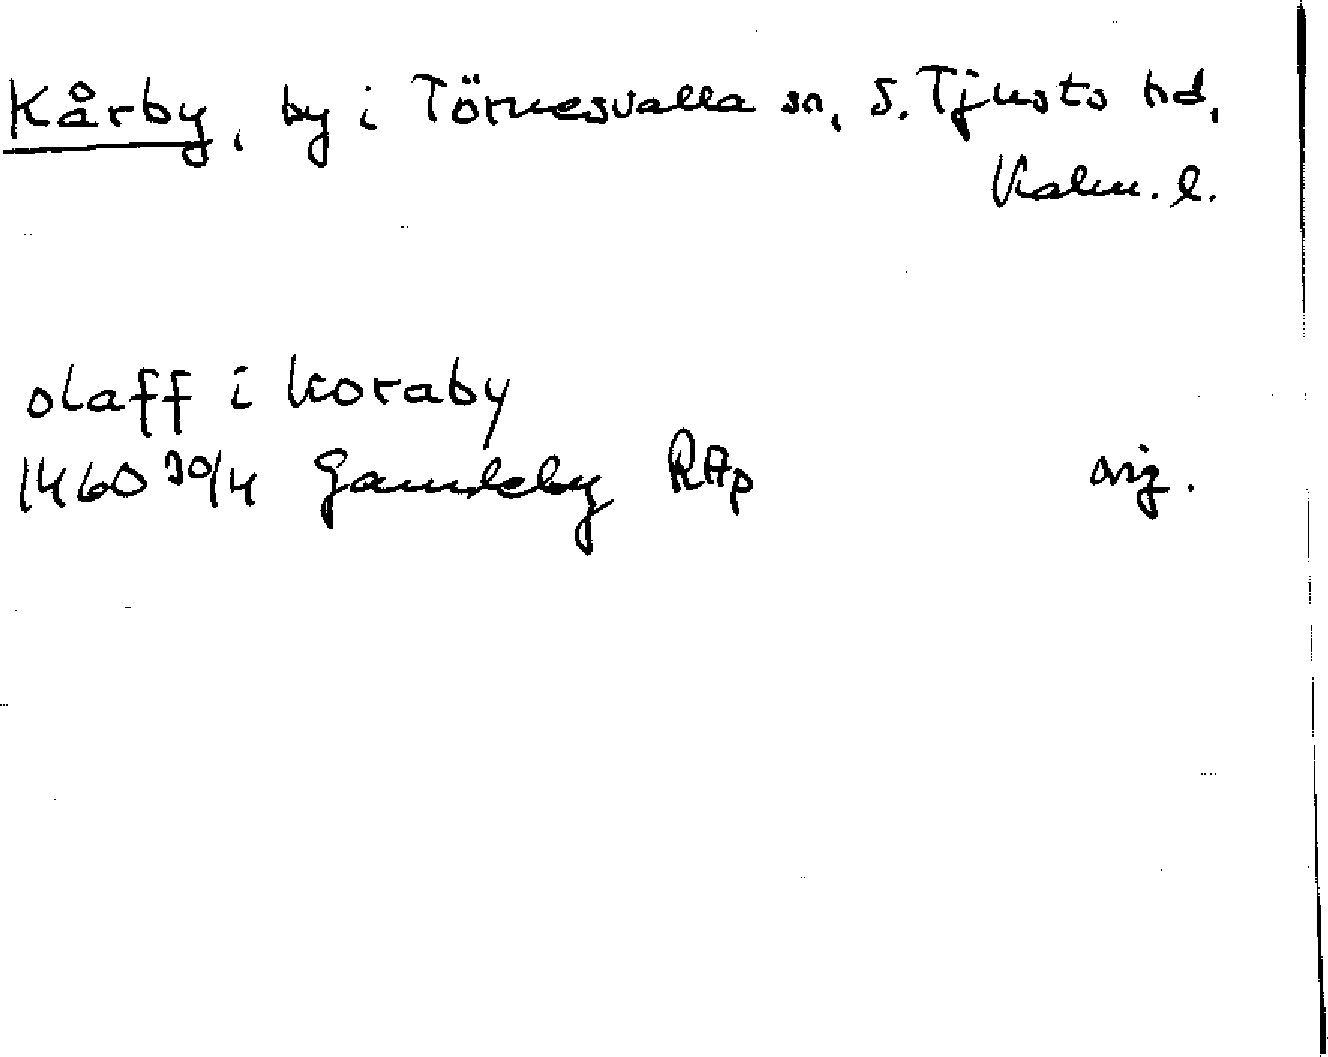 Kårby, by i Törnesvalla sn, S. Tjusts hd,
Kalm. l.
olaff i koraby
1460 30/4 Gamleby RAp orig.